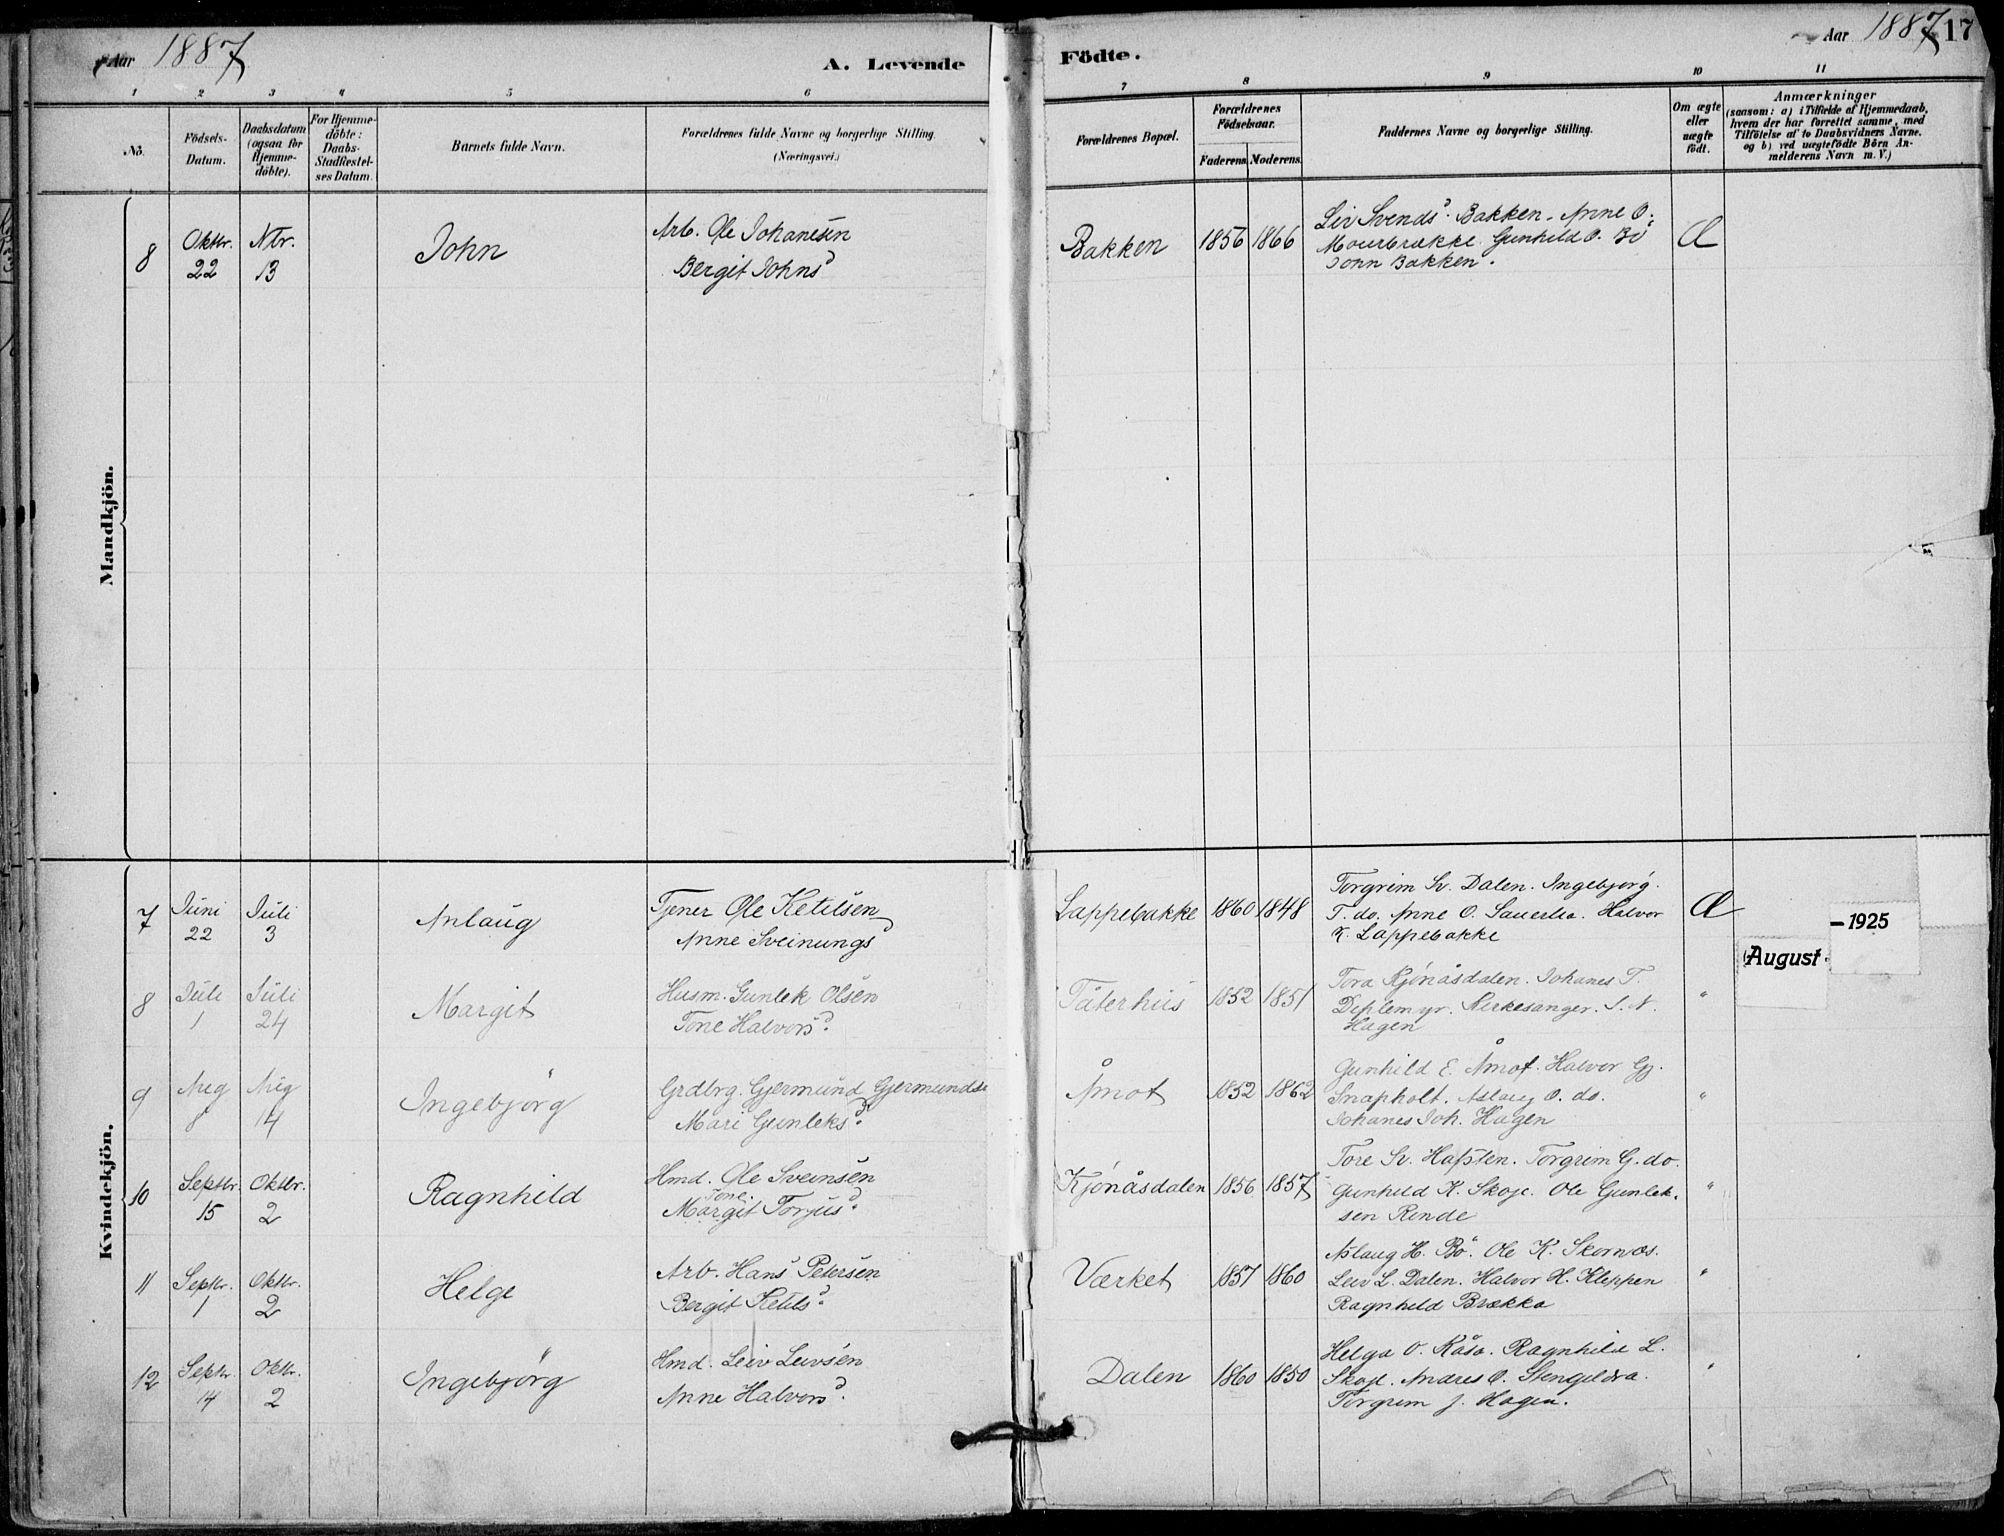 Aar 1887
A. Levende
Födte.
Aar 1887
17
1 2 3 4 5 6 7 8 9 10 11
No.
Födsels-
Datum.
Daabsdatum
(ogsaa for
Hjemme-
döbte).
For Hjemme-
döbte:
Daabs-
Stadfæstel-
ses Datum.
Barnets fulde Navn.
Forældrenes fulde Navne og borgerlige Stilling.
(Næringsvei.)
Forældrenes Bopæl.
Forældrenes
Födselsaar.
Faderens. Moderens.
Faddernes Navne og borgerlige Stilling.
Om ægte
eller
uægte
födt.
Anmærkninger
(saasom: a) i Tilfælde af Hjemmedaab,
hvem der har forrettet samme, med
Tilföielse af to Daabsvidners Navne.
og b) ved uægtefödte Börn An-
melderens Navn m. V.)
Mandkjön.
8 Oktbr. 22 Nbr. 13 John
Arb. Ole Johanesen
Bergit Johnsd
Bakken 1856 1866
Liv Svendsd. Bakken. Anne O.
Mourbrække. Gunhild O. Bö
John Bakken.
Æ
Kvindekjön.
7 Juni 22 Juli 3 Anlaug
Tjener Ole Ketilsen
Anne Sveinungsd
Lappebakke 1860 1848
Torgrim Sv. Dalen. Ingebjørg.
T. do. Anne O. Halvor
K. Lappebakke
Æ
– 1925
August
8 Juli 1 Juli 24 Margit
Husm. Gunlek Olsen
Tone Halvorsd.
Tåterhus 1852 1851
Tora Kjønåsdalen. Johanes T.
Deplemyr. Kirkesanger. S. N.
Hagen
"
9 Aug 8 Aug 14 Ingebjörg
Grdbrg. Gjermund Gjermundsn
Mari Gunleksd.
Åmot 1852 1862
Gunhild E. Åmot. Halvor Gj.
Snapholt. Aslaug O. do.
Johanes Joh. Hagen
"
10 Septbr. 15 Oktbr. 2 Ragnhild
Hmd. Ole Sveinsen
Tone
Margit Torjusd.
Kjønåsdalen 1856 1857
Tore Sv. Hafsten. Torgrim G. do.
Gunhild K. Skoje. Ole Gunlek-
sen Rinde
"
11 Septbr. 1 Oktbr. 2 Helge
Arb. Hans Petersen
Bergit Ketilsd.
Værket 1857 1860
Aslaug H. Bö. Ole K. Skornæs.
Leiv L. Dalen. Halvor H. Kleppen
Ragnhild Brække
"
12 Septbr. 14 Oktbr. 2 Ingebjörg
Hmd. Leiv Leivsen
Anne Halvorsd.
Dalen 1860 1850
Helga O. Råsa. Ragnhild L.
Skoje. Andres O. Stengelsra.
Torgrim J. Hagen.
"